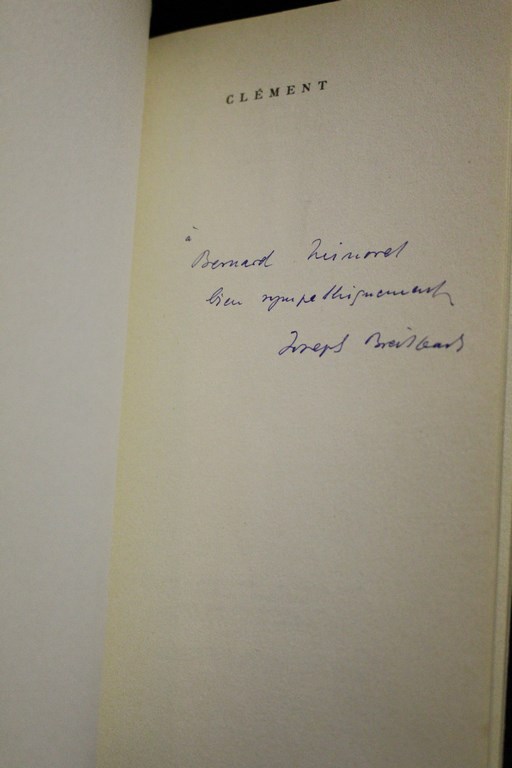 CLÉMENT
à
Bernard
bien sympathiquement
Joseph Breitbach